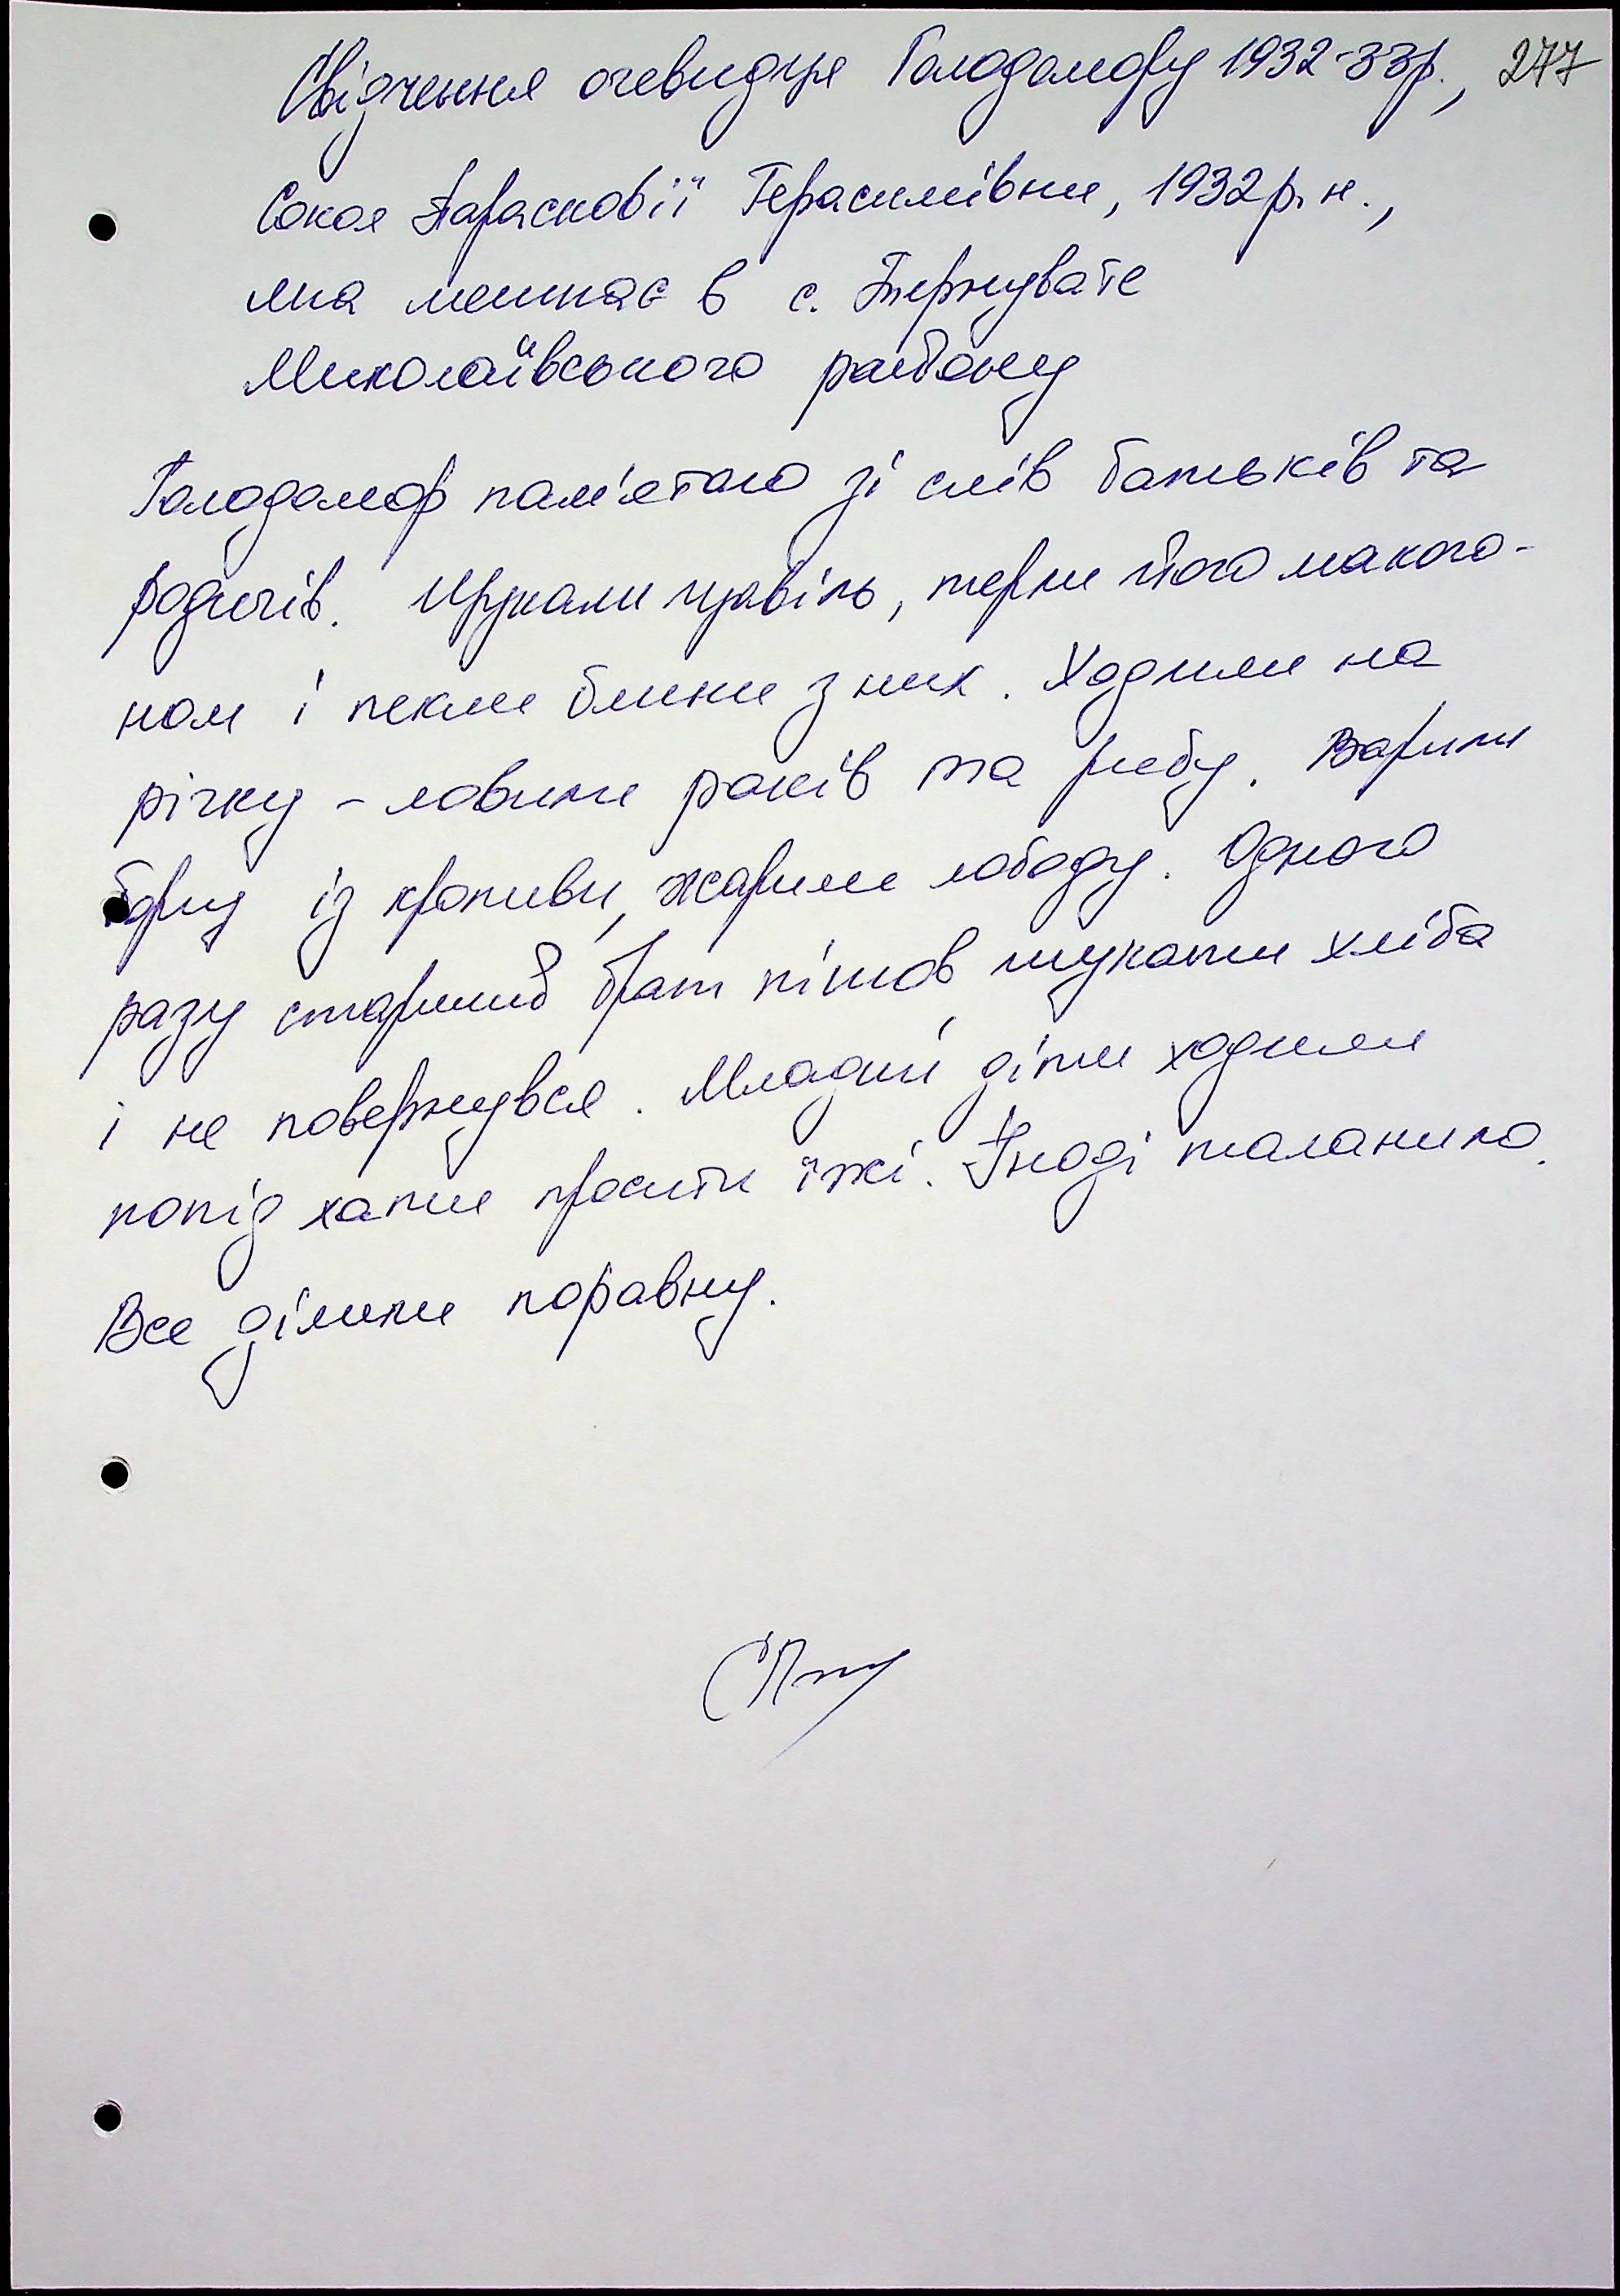 Свідчення очевидця Голодомору 1932-33р., 277
Сокол Парасковії Герасимівни, 1932р.н.,
яка мешкає в с. Тернувате
Миколаївського району
Голодомор пам'ятаю зі слів батьків та
родичів. Шукали щавіль, терли його макого-
ном і пекли блини з них. Ходили на
річку - ловили раків та рибу. Варили
борщ із кропиви, жарили лободу. Одного
разу старший брат пішов шукати хліба
і не повернувся. Младші діти ходили
попід хати просити їжі. Іноді таланило.
Все ділили поравну.